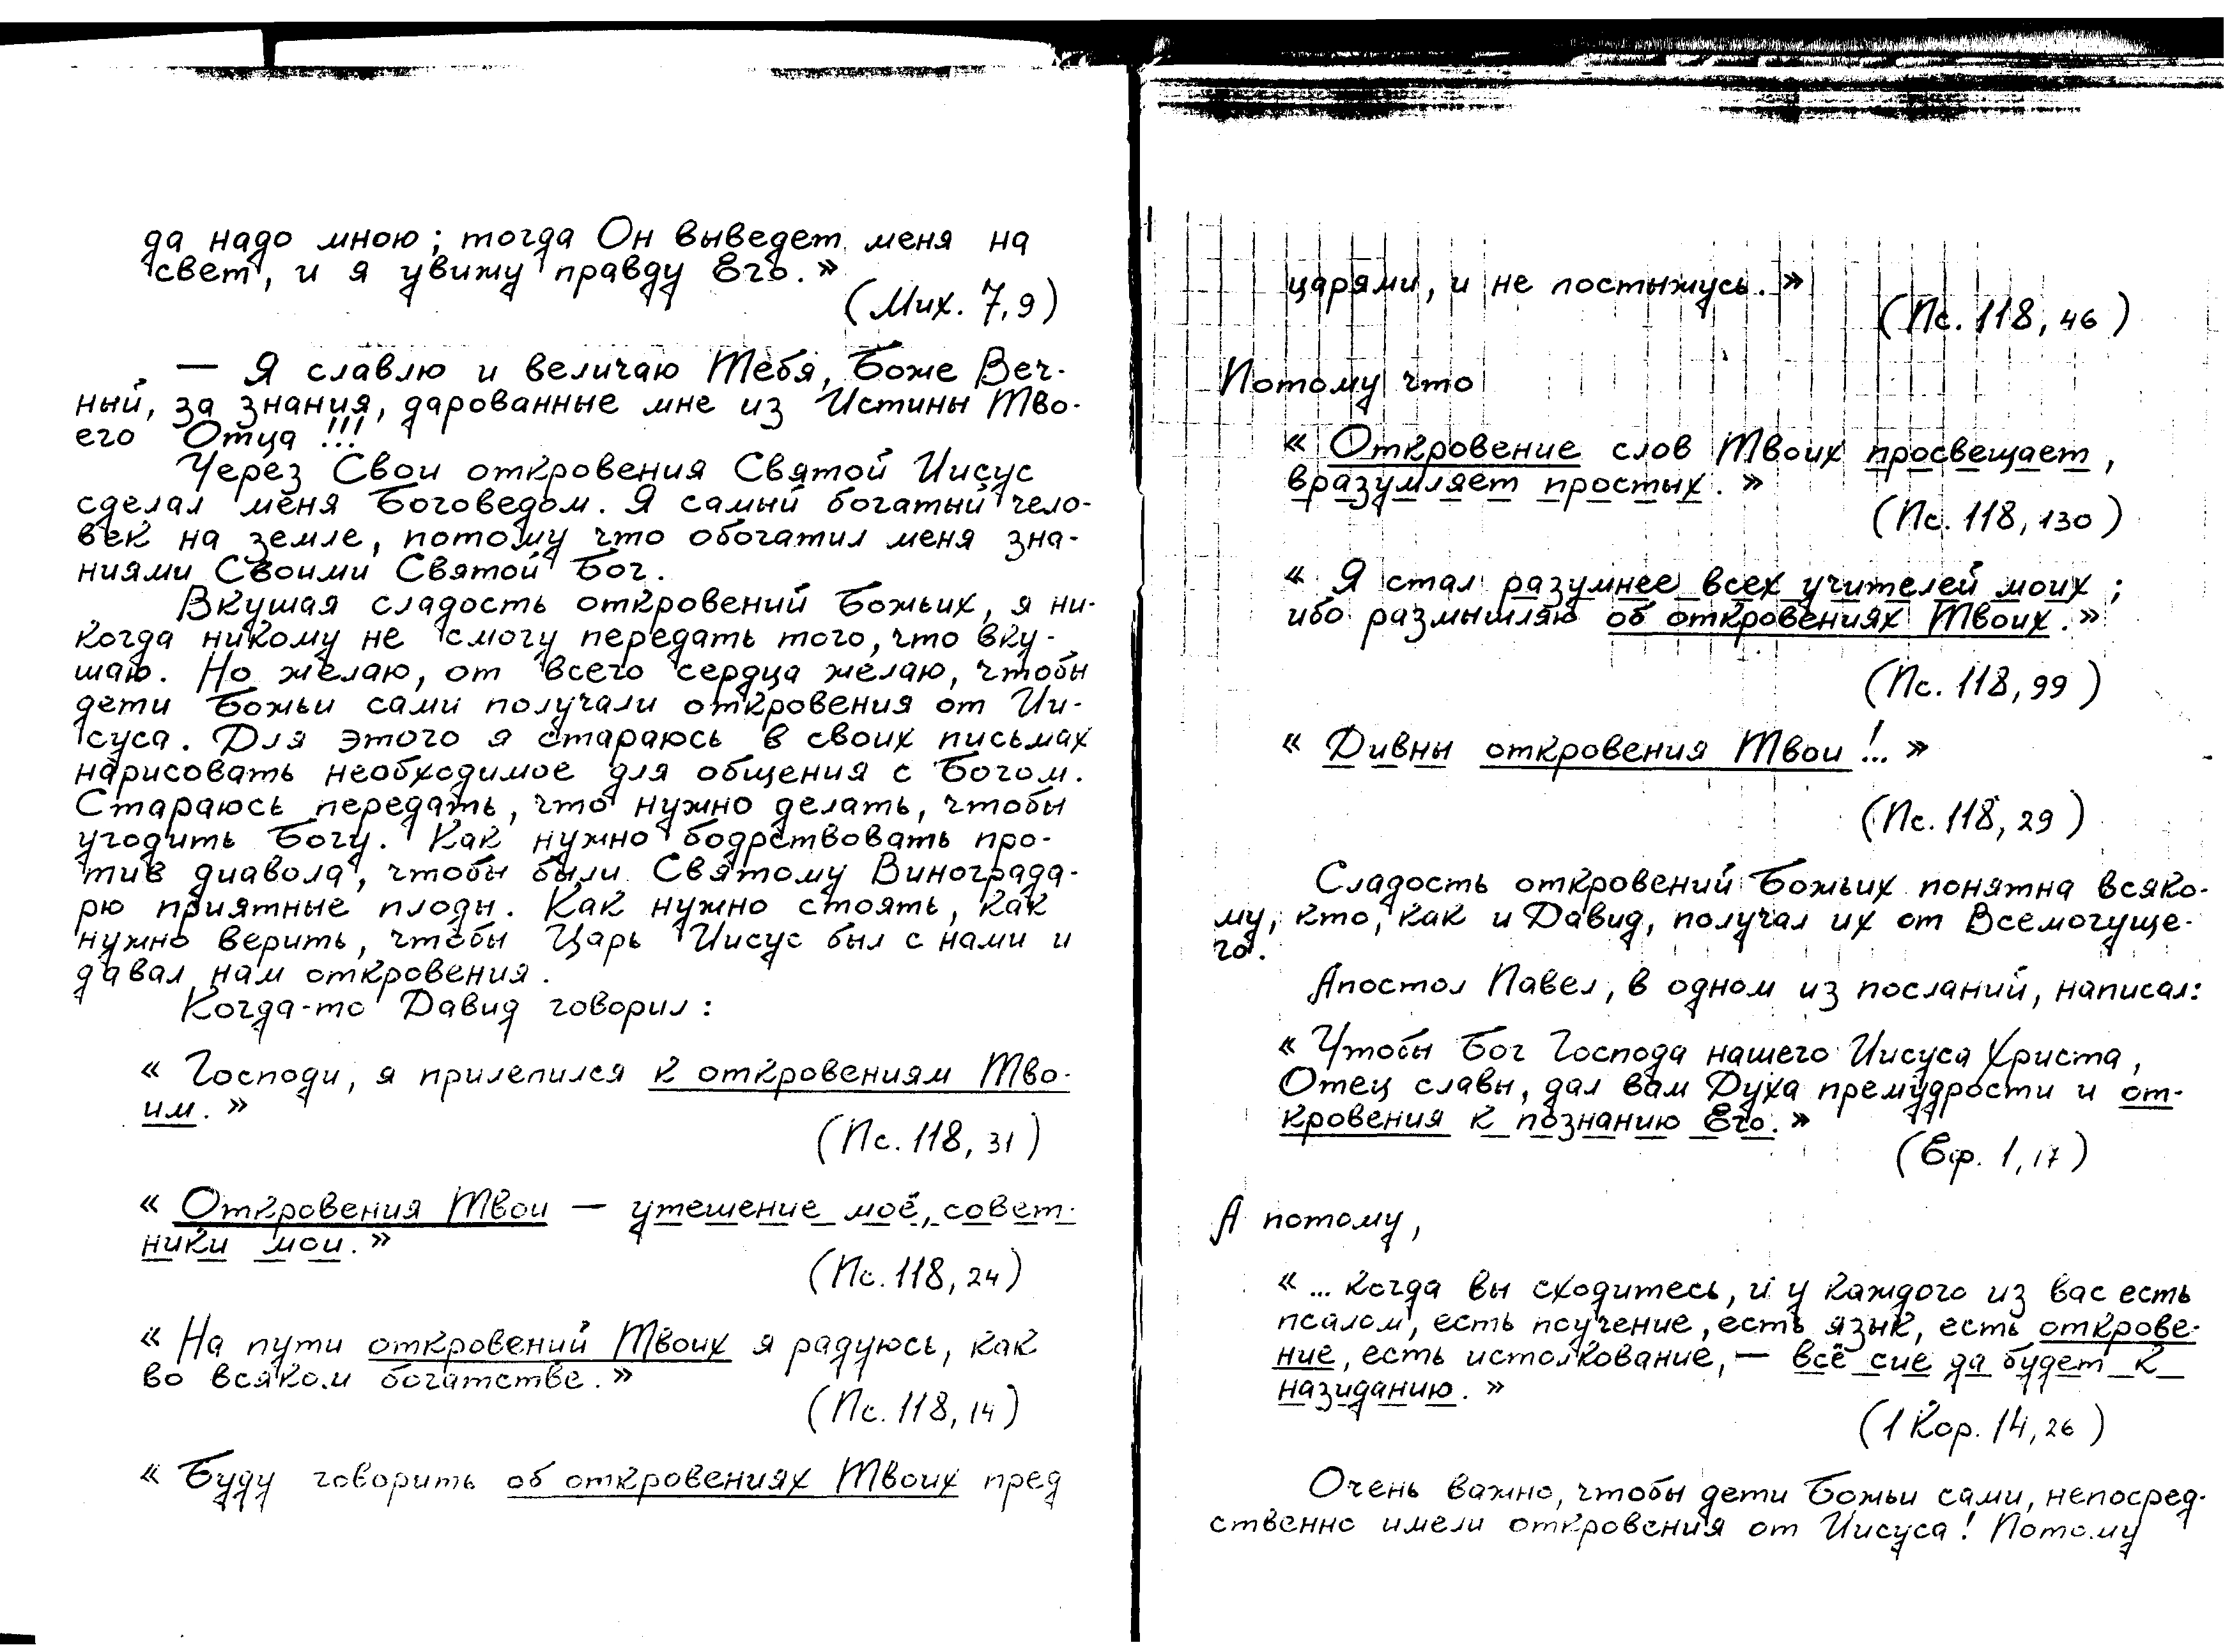 да надо мною; тогда Он выведет меня на
свет, и я увижу правду Его.»
(Мих. 7,9)
— Я славлю и величаю Тебя, Боже Веч-
ный, за знания, дарованные мне из Истины Тво-
его Отца!!!
Через Свои откровения Святой Иисус
сделал меня Боговедом. Я самый богатый чело-
век на земле, потому что обогатил меня зна-
ниями Своими Святой Бог.
Вкушая сладость откровений Божьих, я ни-
когда никому не смогу передать того, что вку-
шаю. Но желаю, от всего сердца желаю, чтобы
дети Божьи сами получали откровения от Ии-
суса. Для этого я стараюсь в своих письмах
нарисовать необходимое для общения с Богом.
Стараюсь передать, что нужно делать, чтобы
угодить Богу. Как нужно бодрствовать про-
тив диавола, чтобы были Святому Виноград­а-
рю приятные плоды. Как нужно стоять, как
нужно верить, чтобы Царь Иисус был с нами и
давал нам откровения.
Когда-то Давид говорил:
« Господи, я прилепился к откровениям Тво-
им.»
(Пс. 118, 31)
« Откровения Твои — утешение моё, совет-
ники мои.»
(Пс. 118, 24)
« На пути откровений Твоих я радуюсь, как
во всяком богатстве.»
(Пс. 118, 14)
« Буду говорить об откровениях Твоих пред
царями, и не постыжусь.»
(Пс. 118, 46)
Потому что
« Откровение слов Твоих просвещает,
вразумляет простых.»
(Пс. 118, 130)
« Я стал разумнее всех учителей моих;
ибо размышляю об откровениях Твоих.»
(Пс. 118, 99)
« Дивны откровения Твои!...»
(Пс. 118, 29)
Сладость откровений Божьих понятна всяко-
му, кто, как и Давид, получал их от Всемогуще-
го.
Апостол Павел, в одном из посланий, написал:
« Чтобы Бог Господа нашего Иисуса Христа,
Отец славы, дал вам Духа премудрости и от-
кровения к познанию Его.»
(Еф. 1, 17)
А потому,
« ... когда вы сходитесь, и у каждого из вас есть
псалом, есть поучение, есть язык, есть открове-
ние, есть истолкование, — всё сие да будет к
назиданию.»
(1 Кор. 14, 26)
Очень важно, чтобы дети Божьи сами, непосред-
ственно имели откровения от Иисуса! Потому